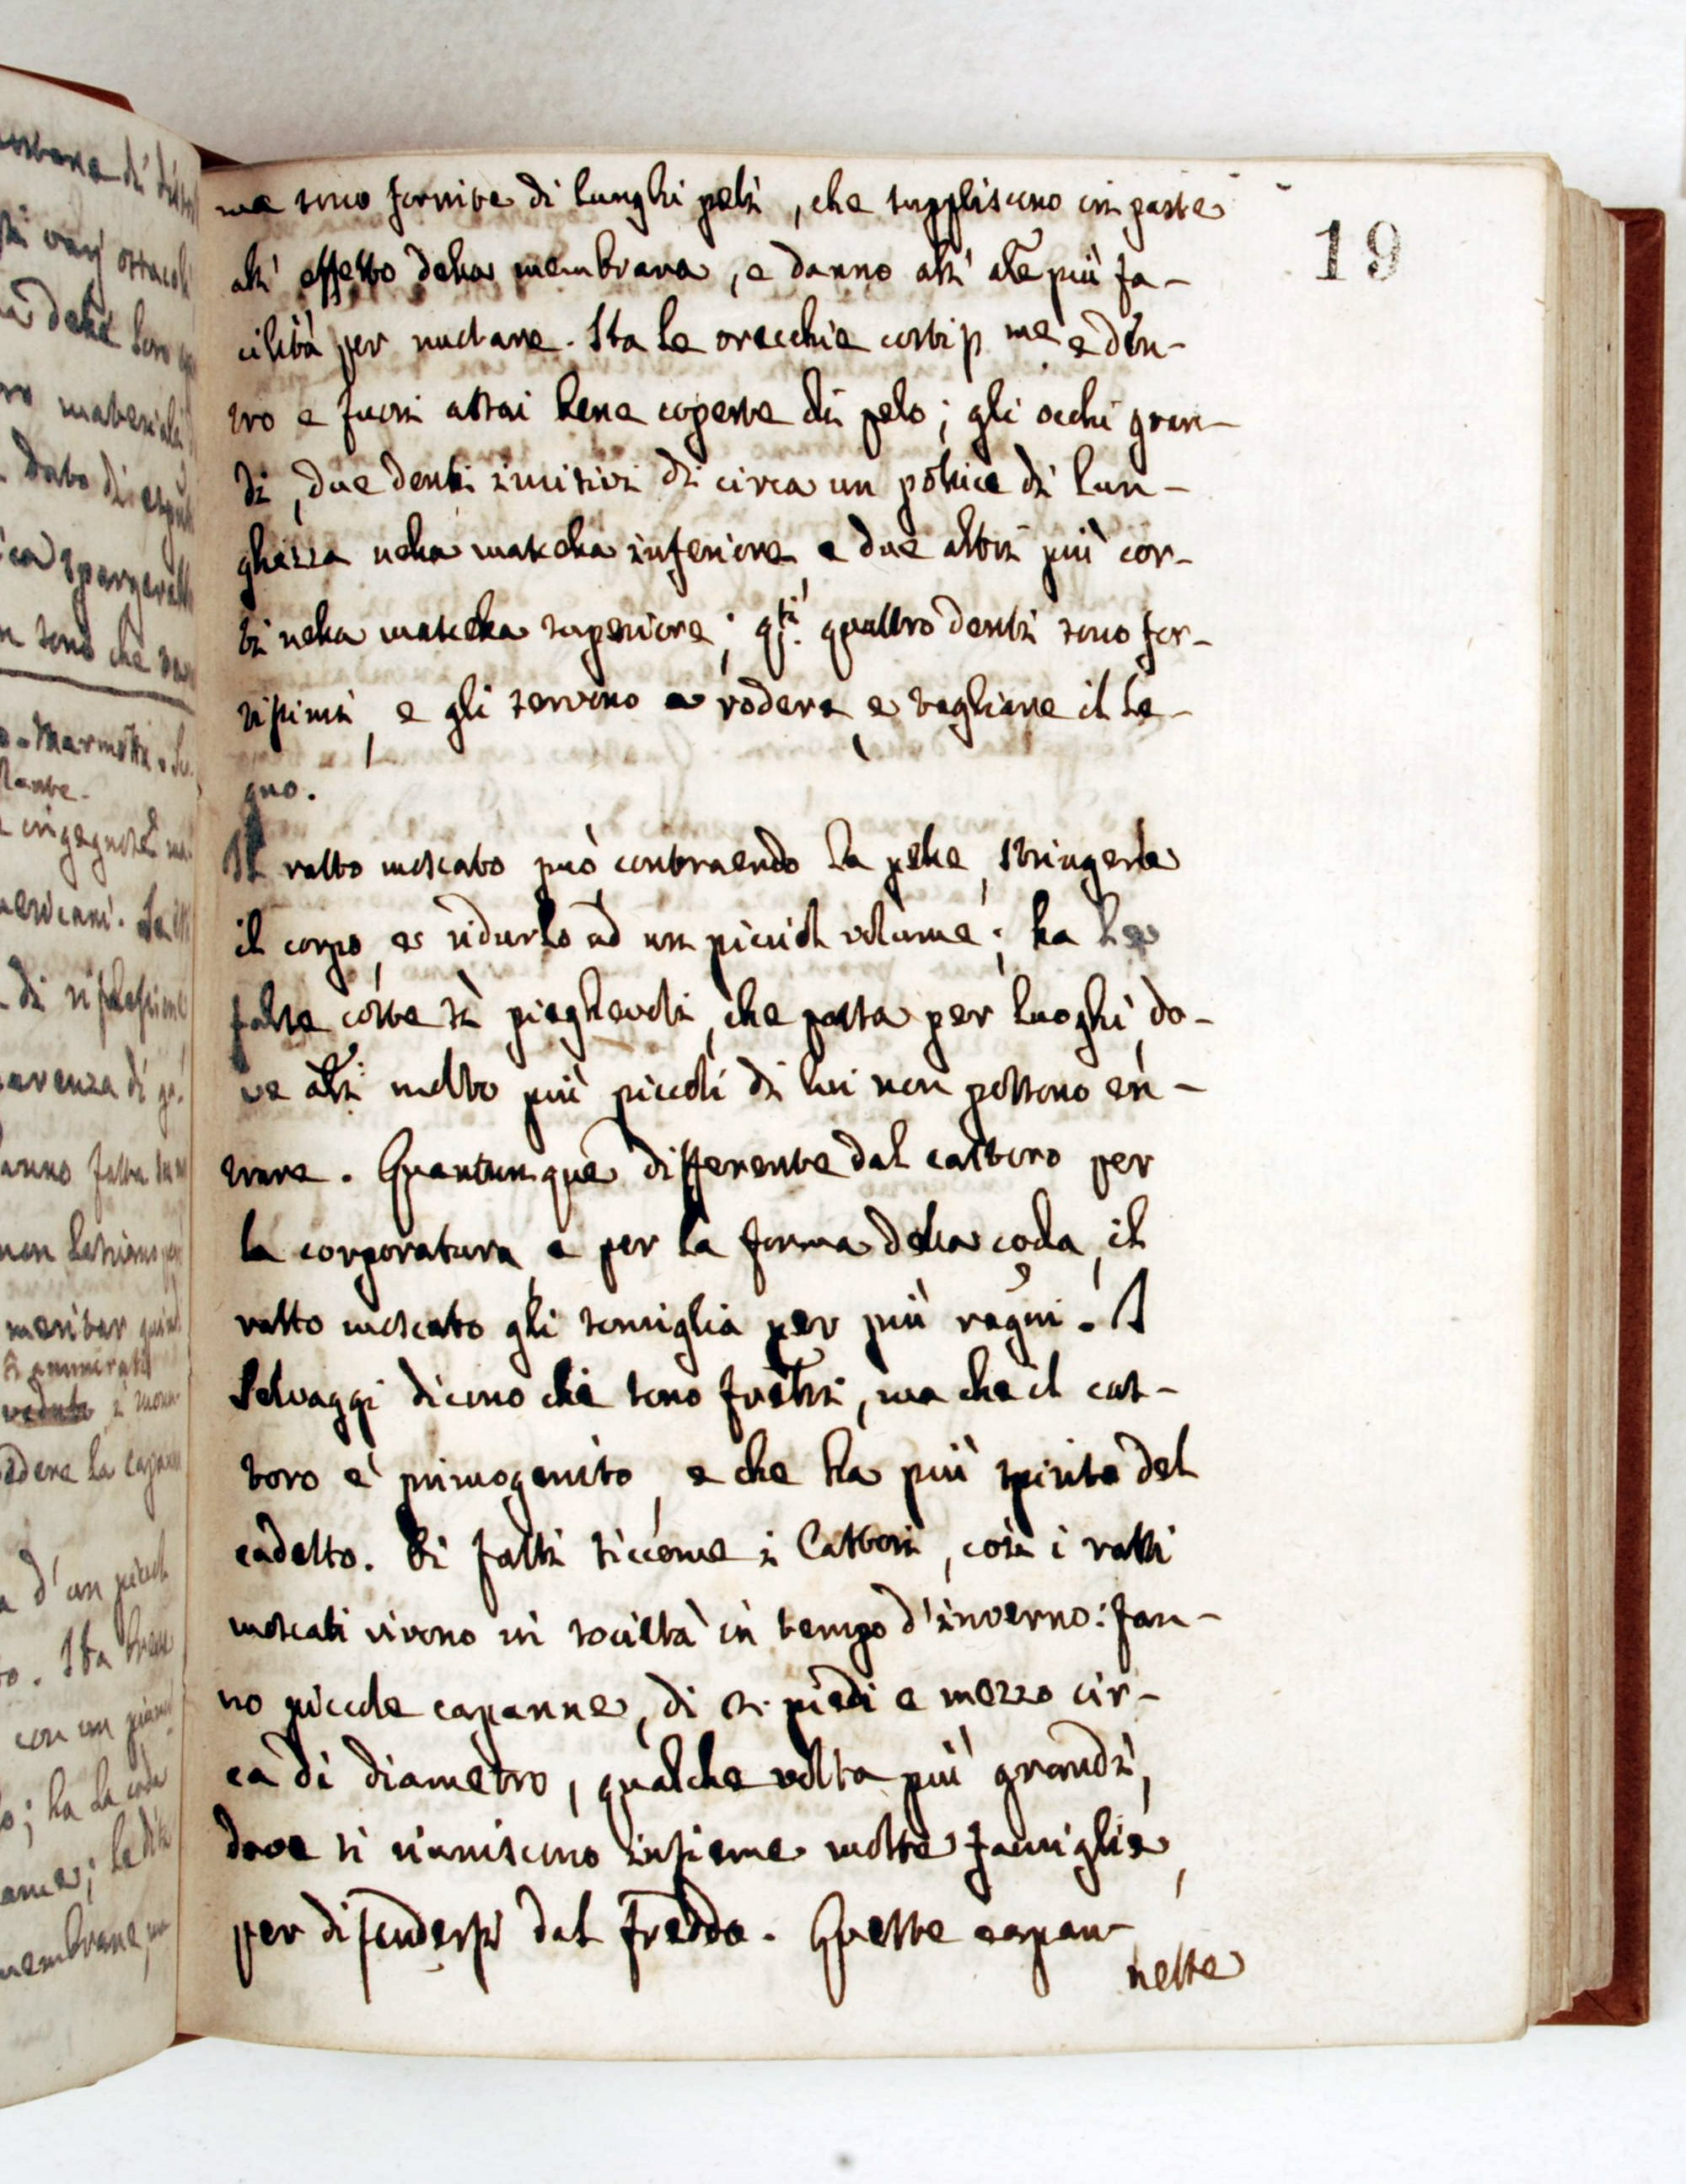 19
ma sono fornite di lunghi peli, che suppliscono in parte
all' effetto della membrana, e danno all' ale più fa-
cilità per nuotare. Ha le orecchie cortiss.me e den-
tro e fuori assai bene coperte di pelo; gli occhi gran-
di, due denti incisivi di circa un pollice di lun-
ghezza nella mascella inferiore, e due altri più cor-
ti nella mascella superiore; q.sti quattro denti sono for-
tissimi, e gli servono a rodere, e tagliare il le-
gno.
Il ratto moscato può contraendo la pelle, stringere
il corpo, e ridurlo ad un picciol volume; ha le
false coste sì pieghevoli, che passa per luoghi, do-
ve altri molto più piccoli di lui non possono en-
trare. Quantunque differente dal castoro per
la corporatura, e per la forma della coda, il
ratto moscato gli somiglia per più ragni. I
Selvaggi dicono che sono fratelli, ma che il cas-
toro è primogenito, e che ha più spirito del
cadetto. Di fatti siccome i Castori, così i ratti
moscati vivono in società in tempo d'inverno: fan-
no piccole capanne, di piedi e mezzo cir-
ca di diametro, qualche volta più grandi,
dove si riuniscono insieme molte famiglie,
per difendersi dal freddo. Queste capan-
nelle